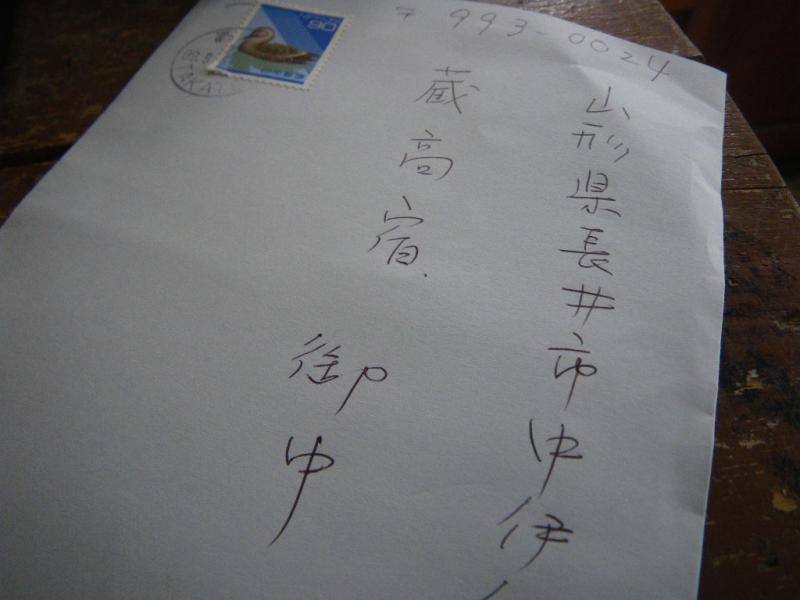 〒993-0024
山形県長井市中伊
蔵高宿
御中
80